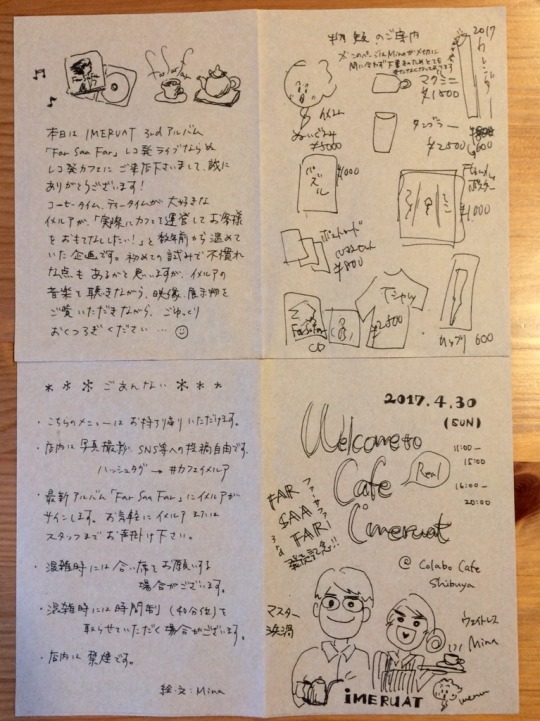 Far Saa Far
本日は IMERUAT 3rd アルバム
「Far Saa Far」レコ発ライブならぬ
レコ発カフェにご来店下さいまして、誠に
ありがとうございます！
コーヒータイム、ティータイムが大好きな
イメルアが、「実際にカフェを運営してお客様
をおもてなししたい！」と数年前から温めて
いた企画です。初めての試みで不慣れ
な点もあるかと思いますが、イメルアの
音楽を聴きながら、映像、展示物を
ご覧いただきながら、ごゆっくり
おくつろぎください…
物販のご案内
2017
カレンダー
600
マグミニ
¥1500
タンブラー
¥2500
イメルム
ぬいぐるみ
¥5000
パズル
¥1000
ポスター
¥1000
ポストカード
¥800
Tシャツ
¥2500
Far Saa Far
CD
600
＊＊＊ ごあんない ＊＊＊
・こちらのメニューはお持ち帰りいただけます。
・店内は写真撮影、SNS等への投稿自由です。
ハッシュタグ → #カフェイメルア
・最新アルバム「Far Saa Far」にイメルアが
サインします。お気軽にイメルアまたは
スタッフまでお声掛け下さい。
・混雑時には合い席をお願いする
場合がございます。
・混雑時には時間制（90分位）を
取らせていただく場合がございます。
・店内は禁煙です。
絵・文：Mina
2017.4.30
(SUN)
11:00–
15:00
16:00–
20:00
Welcome to
Real
Cafe
imeruat
FAR
SAA
FAR!
ファーサーファー
3rd
発売記念!!
@ Colabo Cafe
Shibuya
マスター
浜渦
ウェイトレス
Mina
imeru
iMERUAT